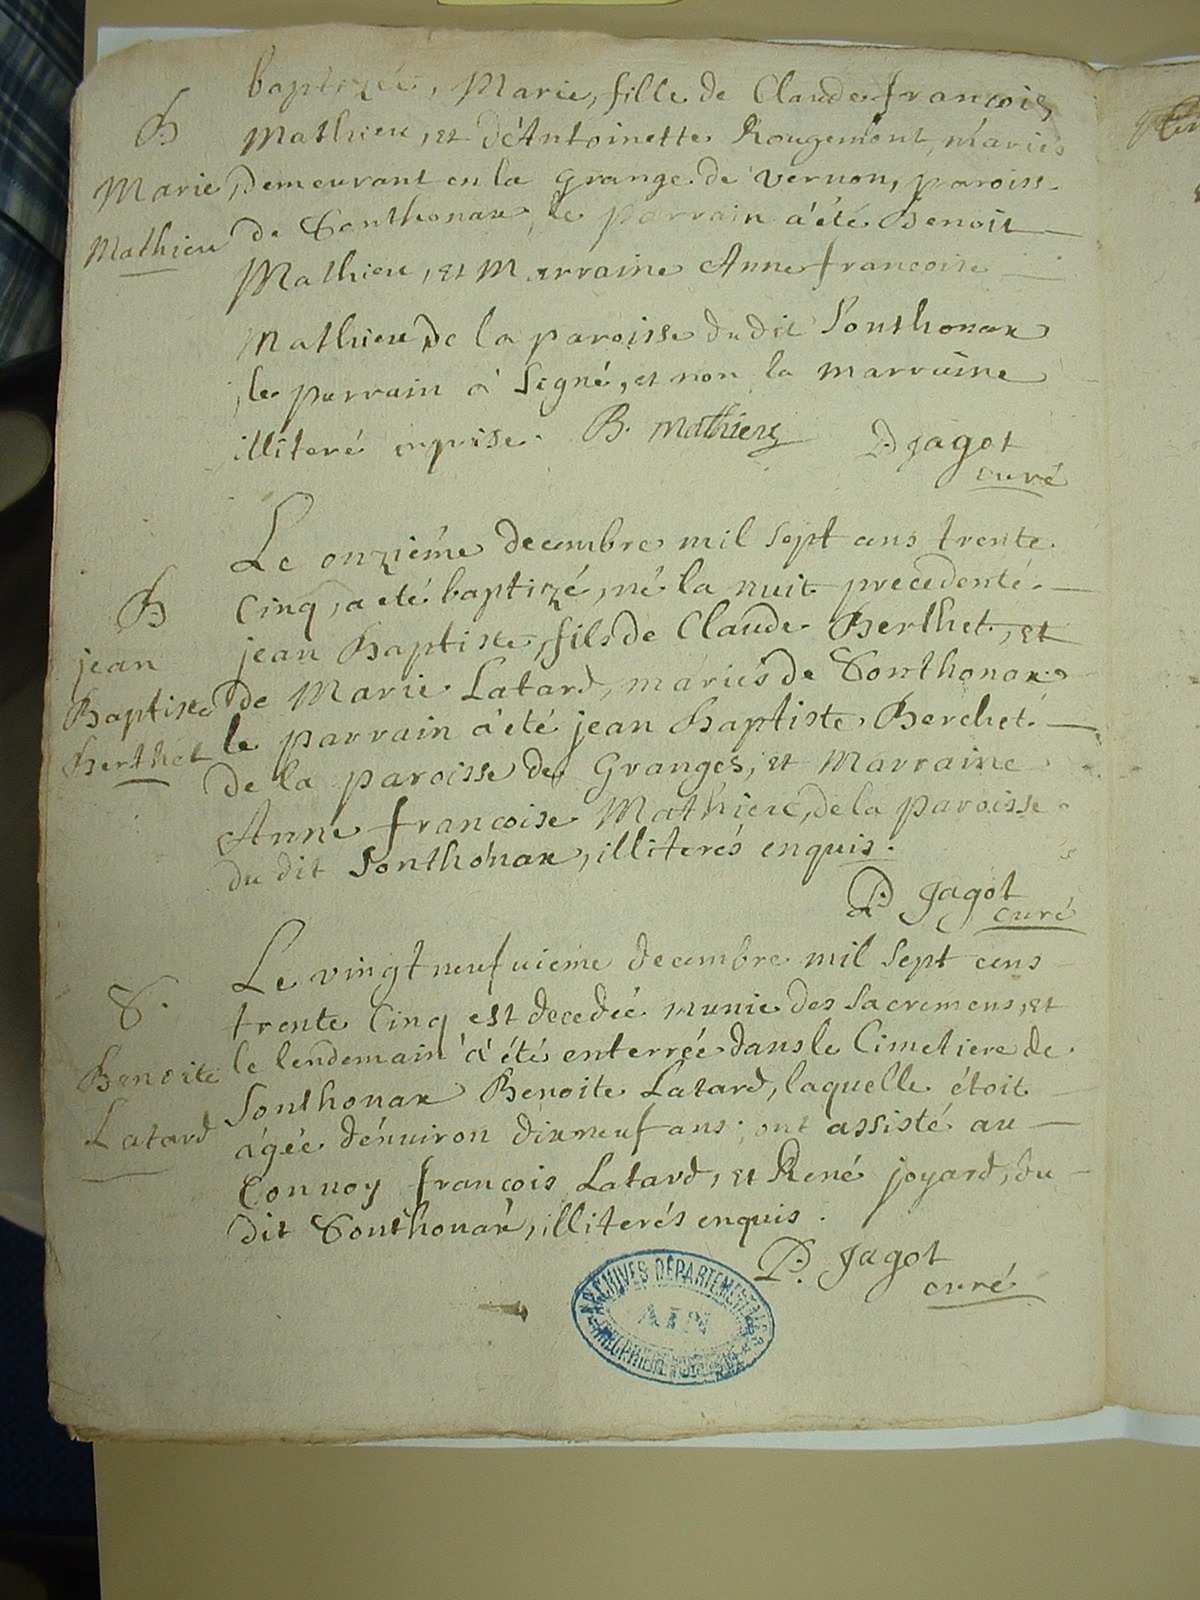 baptizée, Marie, fille de Claude françois
B Mathieu, et d'Antoinette Rougemont, mariés
Marie demeurant en la grange de vernon, paroiss.
Mathieu de Sonthonax, le parrain a été Benoit
Mathieu, et Marraine Anne françoise
Mathieu, de la paroisse du dit Sonthonax
le parrain a signé, et non la marraine
illiteré enquise. B. Mathieu P. Jagot
curé
Le onziéme decembre mil sept cens trente
B Cinq, a eté baptizé, né la nuit precedente
jean jean Baptiste, fils de Claude Berthet, et
Baptiste de Marie Latard, mariés de Sonthonax
Berthet le parrain a été jean Baptiste Berchet
de la paroisse de Granges, et Marraine
Anne françoise Mathieu, de la paroisse
du dit Sonthonax, illiterés enquis.
P. Jagot
curé
Le vingt neufuiéme decembre mil sept cens
S. trente Cinq est decedée munie des Sacremens, et
Benoite le lendemain a été enterrée dans le Cimetiere de
Latard Sonthonax Benoite Latard, laquelle étoit
agée d'enuiron dixneuf ans; ont assisté au
Connoy françois Latard, et René joyard, du
dit Sonthonax, illiterés enquis.
P. Jagot
curé
ARCHIVES DÉPARTEMENTALES
AIN